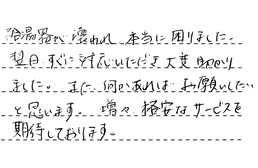 給湯器が壊われ、本当に困りました。
翌日すぐに対応いただき大変助かり
ました。また、何かあればお願いしたい
と思います。増々格安なサービスを
期待しております。